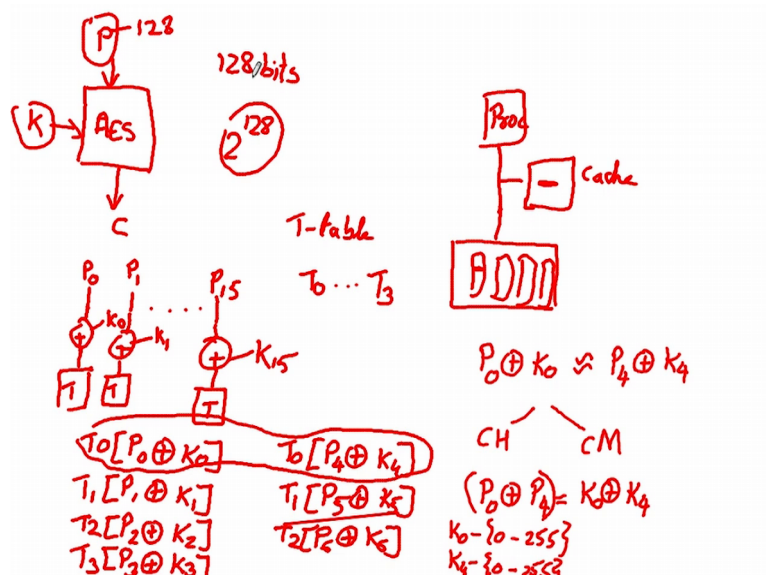 P 128
128 bits
K AES
2^128
C
Proc
Cache
T-table
T0 ... T3
P0 P1 ..... P15
K0 K1 K15
T T T
P0 ⊕ K0 ≈ P4 ⊕ K4
CH CM
T0[P0 ⊕ K0] T0[P4 ⊕ K4]
T1[P1 ⊕ K1] T1[P5 ⊕ K5]
T2[P2 ⊕ K2] T2[P6 ⊕ K6]
T3[P3 ⊕ K3]
(P0 ⊕ P4) = K0 ⊕ K4
K0-{0-255}
K4-{0-255}